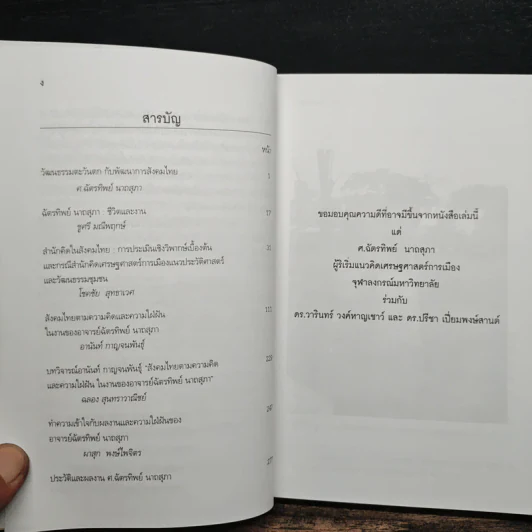 ง
สารบัญ
หน้า
วัฒนธรรมตะวันตก กับพัฒนาการสังคมไทย
ศ.ฉัตรทิพย์ นาถสุภา
ฉัตรทิพย์ นาถสุภา : ชีวิตและงาน
ชูศรี มณีพฤกษ์
สำนักคิดในสังคมไทย : การประเมินเชิงวิพากษ์เบื้องต้น
และกรณีสำนักคิดเศรษฐศาสตร์การเมืองแนวประวัติศาสตร์
และวัฒนธรรมชุมชน
โชคชัย สุทธาเวศ
สังคมไทยตามความคิดและความใฝ่ฝัน
ในงานของอาจารย์ฉัตรทิพย์ นาถสุภา
อานันท์ กาญจนพันธุ์
บทวิจารณ์อานันท์ กาญจนพันธุ์ "สังคมไทยตามความคิด
และความใฝ่ฝัน ในงานของอาจารย์ฉัตรทิพย์ นาถสุภา"
ฉลอง สุนทราวาณิชย์
ทำความเข้าใจกับผลงานและความใฝ่ฝันของ
อาจารย์ฉัตรทิพย์ นาถสุภา
ผาสุก พงษ์ไพจิตร
ประวัติและผลงาน ศ.ฉัตรทิพย์ นาถสุภา
ขอมอบคุณความดีที่อาจมีขึ้นจากหนังสือเล่มนี้
แด่
ศ.ฉัตรทิพย์ นาถสุภา
ผู้ริเริ่มแนวคิดเศรษฐศาสตร์การเมือง
จุฬาลงกรณ์มหาวิทยาลัย
ร่วมกับ
ดร.วารินทร์ วงค์หาญเชาว์ และ ดร.ปรีชา เปี่ยมพงษ์สานต์